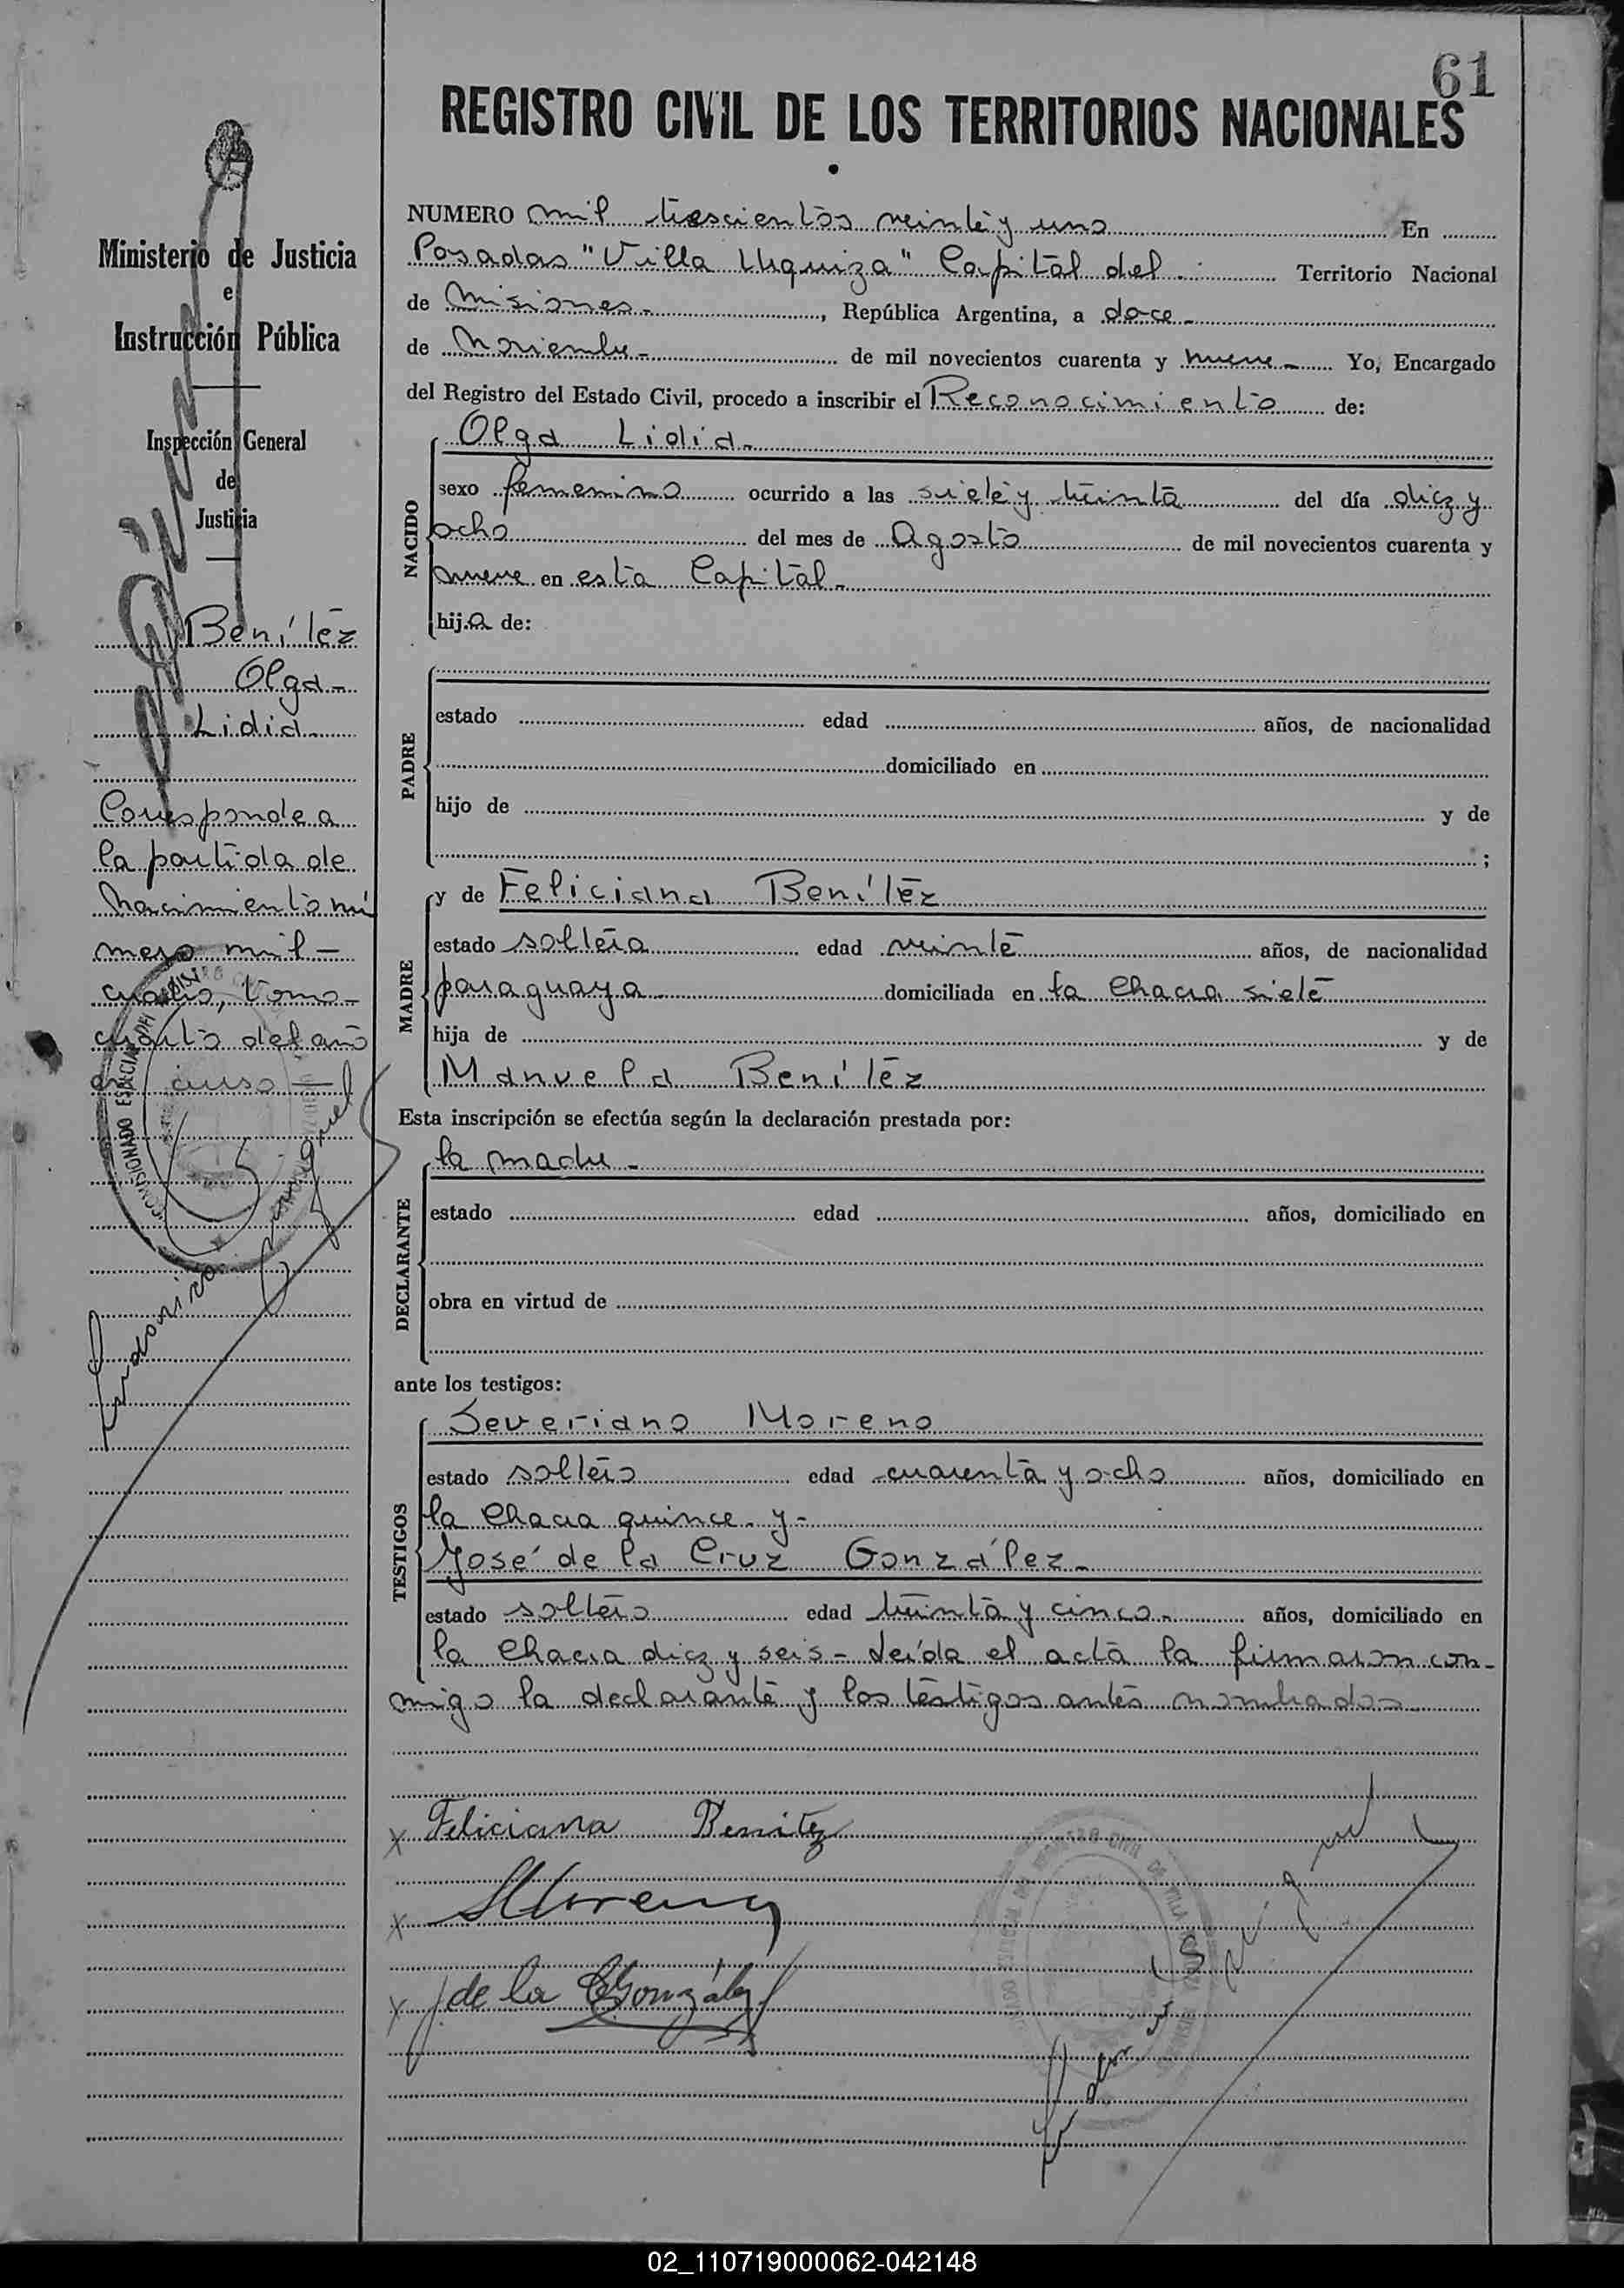 61
REGISTRO CIVIL DE LOS TERRITORIOS NACIONALES
NUMERO mil trescientos veinte y uno En
Posadas "Villa Urquiza" Capital del Territorio Nacional
de Misiones - , República Argentina, a doce -
de Noviembre - de mil novecientos cuarenta y nueve - Yo, Encargado
del Registro del Estado Civil, procedo a inscribir el Reconocimiento de:
NACIDO
Olga Lidia -
sexo femenino ocurrido a las siete y treinta del día diez y
ocho del mes de Agosto de mil novecientos cuarenta y
nueve en esta Capital -
hija de:
PADRE
estado edad años, de nacionalidad
domiciliado en
hijo de y de
;
MADRE
y de Feliciana Benítez
estado soltera edad veinte años, de nacionalidad
paraguaya domiciliada en la Chacra siete
hija de y de
Manuela Benítez
Esta inscripción se efectúa según la declaración prestada por:
DECLARANTE
la madre -
estado edad años, domiciliado en
obra en virtud de
ante los testigos:
TESTIGOS
Severiano Moreno
estado soltero edad cuarenta y ocho años, domiciliado en
la Chacra quince y -
José de la Cruz González -
estado soltero edad treinta y cinco - años, domiciliado en
la Chacra diez y seis - Leída el acta la firmaron con-
migo la declarante y los testigos antes nombrados
x Feliciana Benitez
x SMoreno
x J. de la C González
Ministerio de Justicia
e
Instrucción Pública
Inspección General
de
Justicia
Benítez
Olga -
Lidia -
Corresponde a
la partida de
Nacimiento nú
mero mil -
cuatro, tomo -
cuarto del año
en curso -
COMISIONADO ESPECIAL DEL REGISTRO
02_110719000062-042148